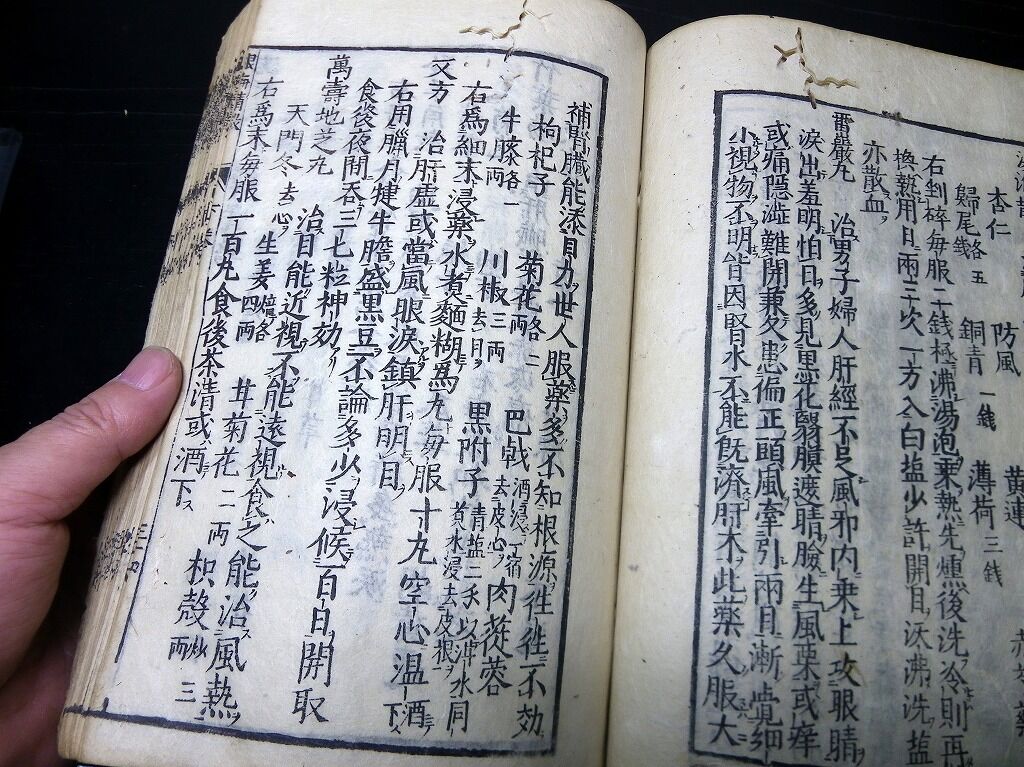 杏仁 防風 黄連
歸尾各五錢 銅青一錢 薄荷三錢
右剉碎毎服二錢極沸湯泡乗熱先燻後洗冷則再
換熱用日兩三次一方入白塩少許開目沃沸洗塩
亦散血
雷巖丸 治男子婦人肝經不足風邪内乗上攻眼睛
淚出羞明怕日多見黒花翳膜遮睛臉生風粟或痒
或痛隱澁難開兼多患偏正頭風牽引兩目漸覺細
小視物不明皆因腎水不能既濟肝木此藥久服大
補腎臟能添目力世人服藥多不知根源徃徃不効
枸杞子 菊花各二兩 巴戟酒浸一宿去皮心 肉蓯蓉
牛膝各一兩 川椒三兩去目 黒附子青塩二泔水同煑水浸去皮根
右爲細末浸藥水煮麵糊爲丸毎服十丸空心温酒下
又方 治肝虚或當風眼淚鎮肝明目
右用臘月犍牛膽盛黒豆不論多少浸候百日開取
食後夜間呑三七粒神効
萬壽地芝丸 治目能近視不能遠視食之能治風熱
天門冬去心 生姜焙各四兩 甘菊花二兩 枳殻炒三兩
右爲末毎服一百丸食後茶清或酒下